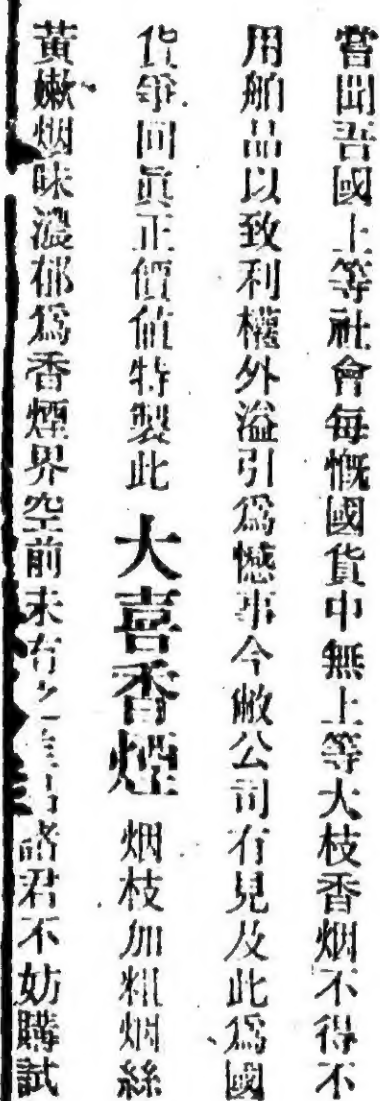 嘗聞吾國上等社會每慨國貨中無上等大枝香烟不得不
用舶品以致利權外溢引爲憾事今敝公司有見及此爲國
貨爭回眞正價值特製此大喜香煙烟枝加粗烟絲
黃嫩烟味濃郁爲香煙界空前未有之諸君不妨購試